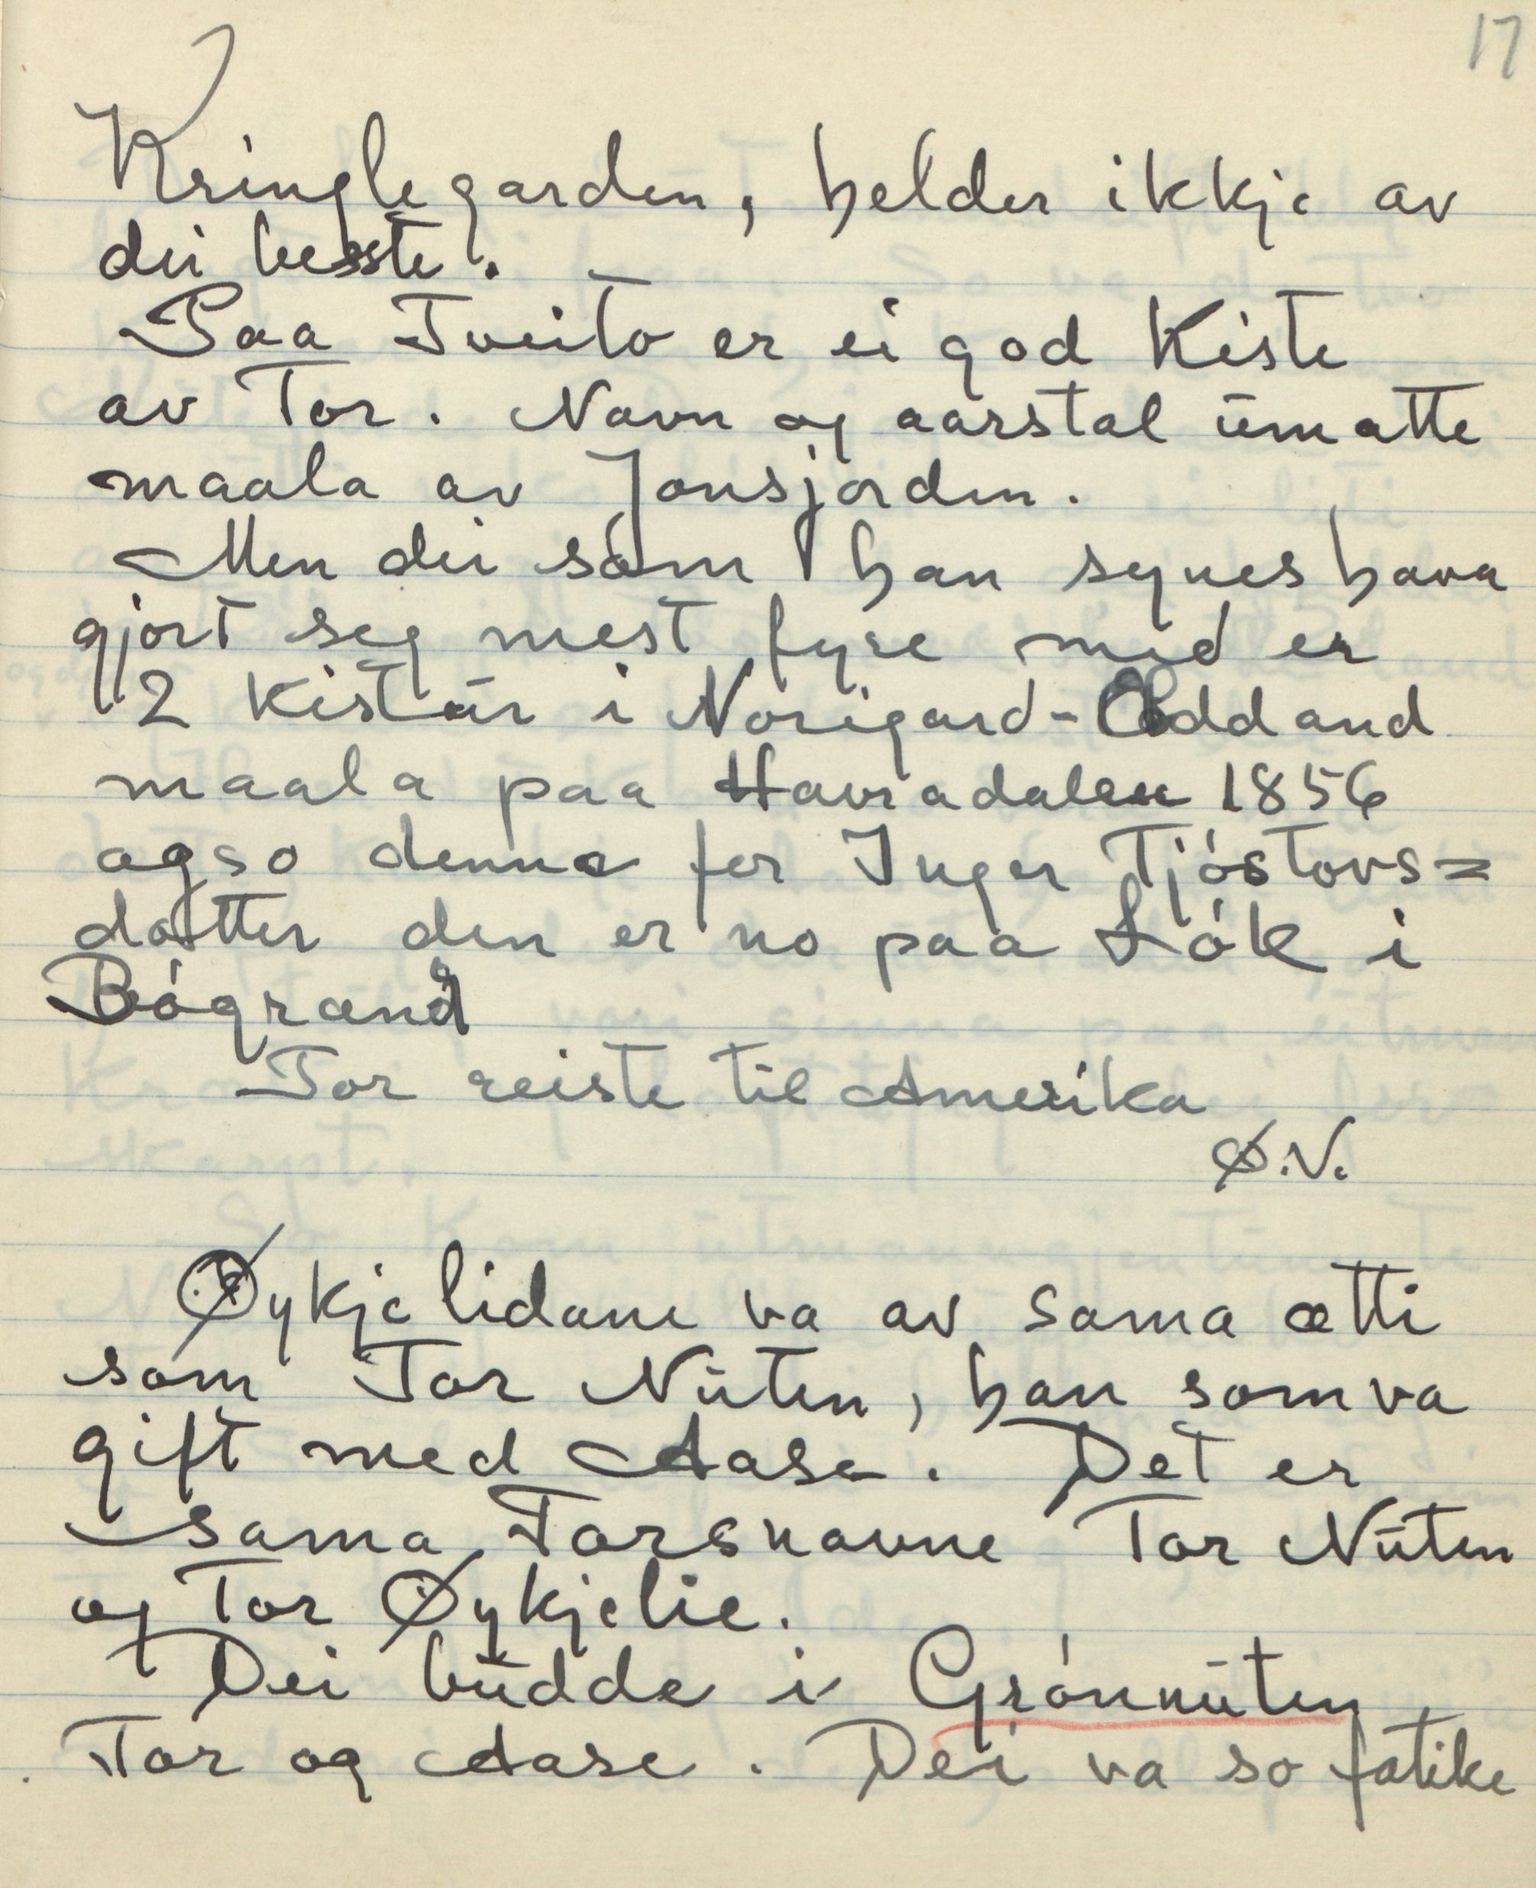 17
Kringlegarden, helder ikkje av
dei besste.
Paa Tveito er ei god Kiste
av Tor. Navn og aarstal ümatte
maala av Jonsjorden.
Men dei sóm han synes hava
gjort seg mest fyre med er
2 Kistür i Norigard-Oddand
maala paa Havradalen 1856
ogso denne fer Inger Tjóstovs=
dotter den er no paa Lók i
Bógrænd
Tor reiste til Amerika
Ø.V.
Øykjelidane va av sama ætti
som Tor Nüten, han som va
gift med Aase. Det er
sama Torsnavne Tor Nüten
og Tor Øykjelie.
Dei büdde i Grónnüten
Tor og Aase. Dei va so fatike